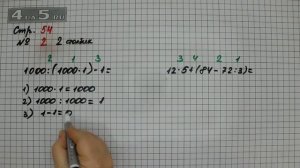 4айБ.RU
Стр. 54
№ 2 2 столбик
2 1 3
1000:(1000·1)-1=
1) 1000·1=1000
2) 1000:1000=1
3) 1-1=0
3 4 2 1
12·5+(84-72:3)=